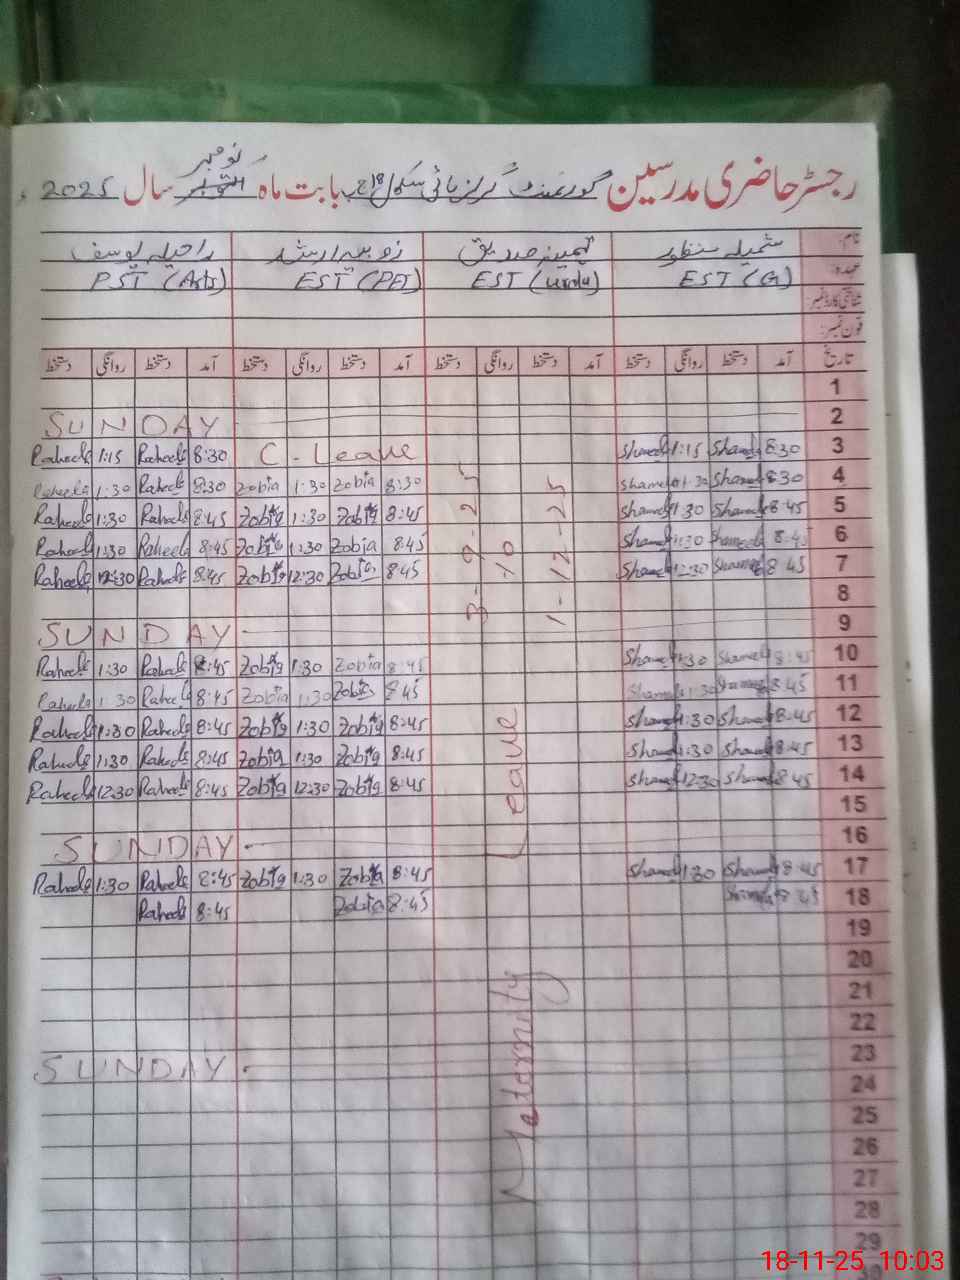 رجسٹر حاضری مدرسین گورنمنٹ گرلز ہائی سکول بابت ماہ نومبر سال 2025
نام: شمیلہ منظور ثمینہ صدیق زوبیہ ارشد راحیلہ یوسف
عہدہ: EST (G) EST (urdu) EST (PET) PST (Arts)
شناختی کارڈ نمبر:
فون نمبر:
تاریخ آمد دستخط روانگی دستخط آمد دستخط روانگی دستخط آمد دستخط روانگی دستخط آمد دستخط روانگی دستخط
1
SUNDAY 2
Raheela 1:15 Raheela 8:30 C- Leave Shameela 1:15 Shameela 8:30 3
Raheela 1:30 Raheela 8:30 Zobia 1:30 Zobia 8:30 Shameela 1:30 Shameela 8:30 4
Raheela 1:30 Raheela 8:45 Zobia 1:30 Zobia 8:45 Shameela 1:30 Shameela 8:45 5
Raheela 1:30 Raheela 8:45 Zobia 1:30 Zobia 8:45 Shameela 1:30 Shameela 8:45 6
Raheela 12:30 Raheela 8:45 Zobia 12:30 Zobia 8:45 Shameela 12:30 Shameela 8:45 7
8
SUNDAY 9
Raheela 1:30 Raheela 8:45 Zobia 1:30 Zobia 8:45 Shameela 1:30 Shameela 8:45 10
Raheela 1:30 Raheela 8:45 Zobia 1:30 Zobia 8:45 Shameela 1:30 Shameela 8:45 11
Raheela 1:30 Raheela 8:45 Zobia 1:30 Zobia 8:45 Shameela 1:30 Shameela 8:45 12
Raheela 1:30 Raheela 8:45 Zobia 1:30 Zobia 8:45 Shameela 1:30 Shameela 8:45 13
Raheela 12:30 Raheela 8:45 Zobia 12:30 Zobia 8:45 Shameela 12:30 Shameela 8:45 14
15
SUNDAY 16
Raheela 1:30 Raheela 8:45 Zobia 1:30 Zobia 8:45 Shameela 1:30 Shameela 8:45 17
Raheela 8:45 Zobia 8:45 Shameela 8:45 18
19
20
21
22
SUNDAY 23
24
25
26
27
28
29
Maternity Leave
3-9-25
to
1-12-25
18-11-25 10:03